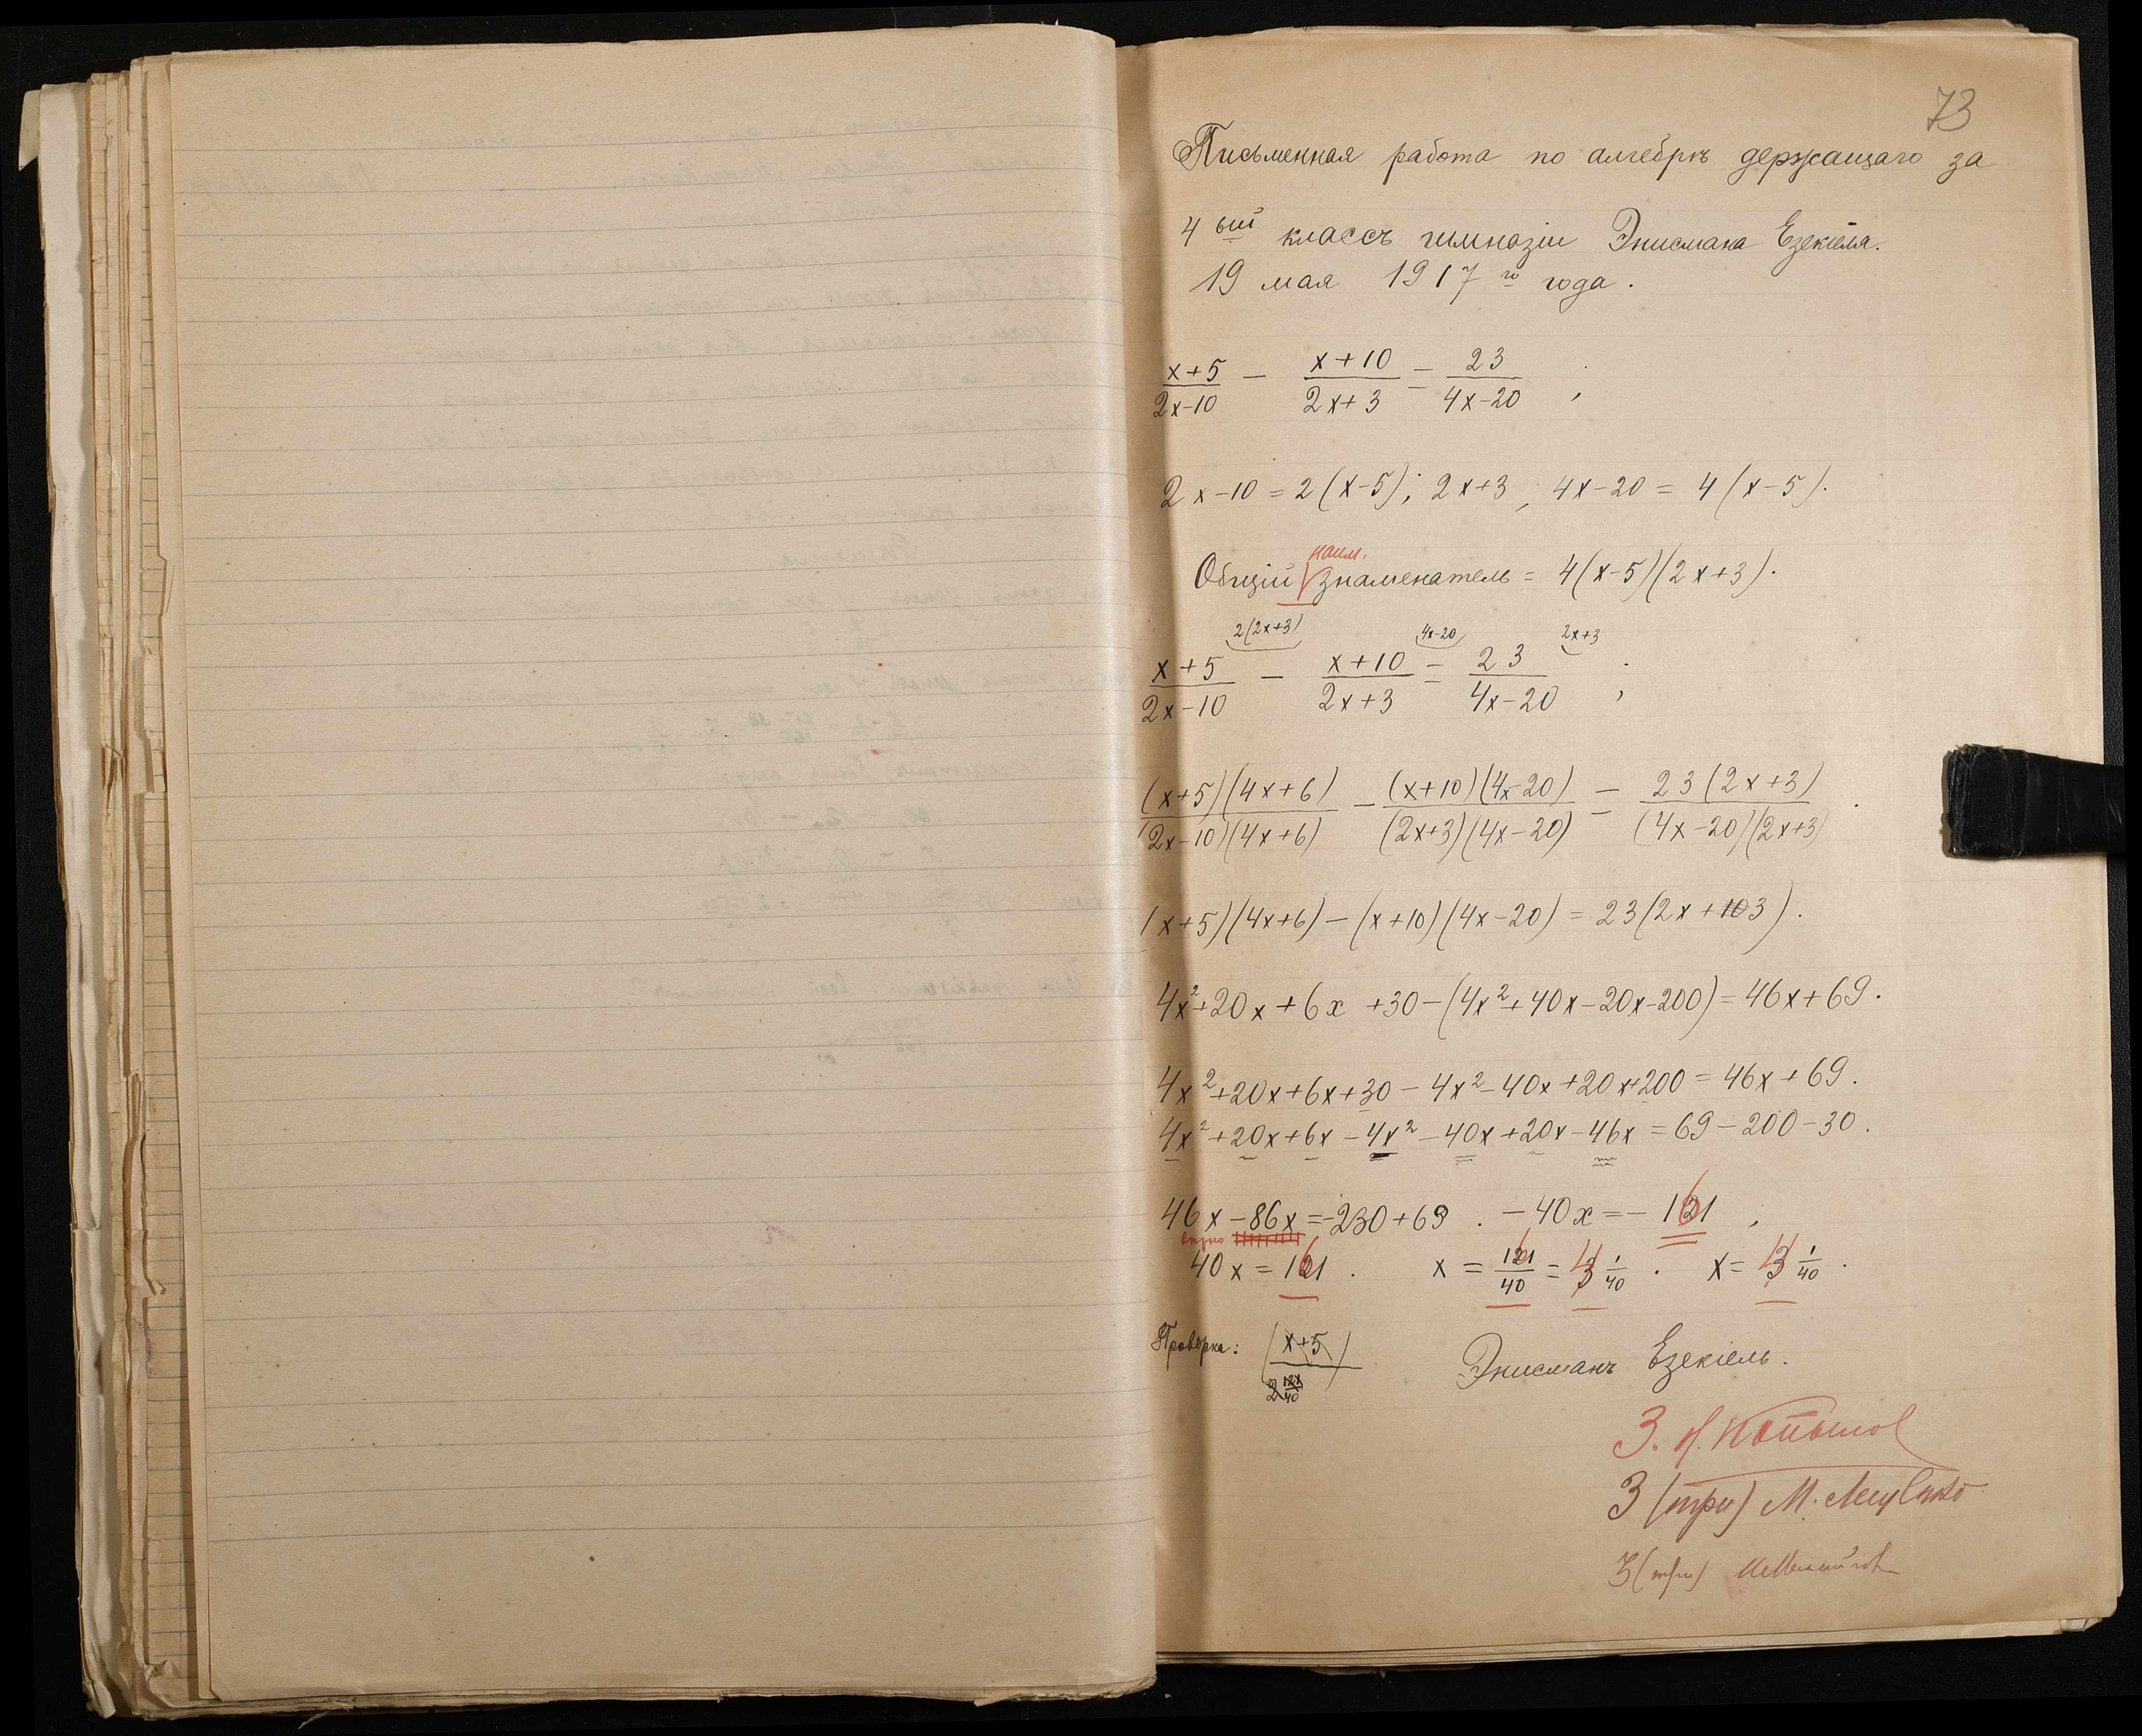 73
Письменная работа по алгебрѣ держащаго за
4 ый классъ гимназіи Энисмана Езекіеля.
19 мая 1917 го года.
(x+5)/(2x-10) - (x+10)/(2x+3) = 23/(4x-20) ;
2x-10 = 2(x-5); 2x+3; 4x-20 = 4(x-5).
наим.
Общій знаменатель = 4(x-5)(2x+3).
2(2x+3) 4x-20 2x+3
(x+5)/(2x-10) - (x+10)/(2x+3) = 23/(4x-20) ;
(x+5)(4x+6)/(2x-10)(4x+6) - (x+10)(4x-20)/(2x+3)(4x-20) = 23(2x+3)/(4x-20)(2x+3) .
(x+5)(4x+6)-(x+10)(4x-20) = 23(2x+3).
4x²+20x+6x+30-(4x²+40x-20x-200)=46x+69.
4x²+20x+6x+30-4x²-40x+20x+200=46x+69.
4x²+20x+6x-4x²-40x+20x-46x=69-200-30.
46x-86x=-230+69. -40x=-161,
вѣрно
40x=161. x = 161/40 = 4 1/40. x = 4 1/40.
Провѣрка: (x+5)
Энисманъ Езекіель.
3.
3 (три) М.
3 (три)